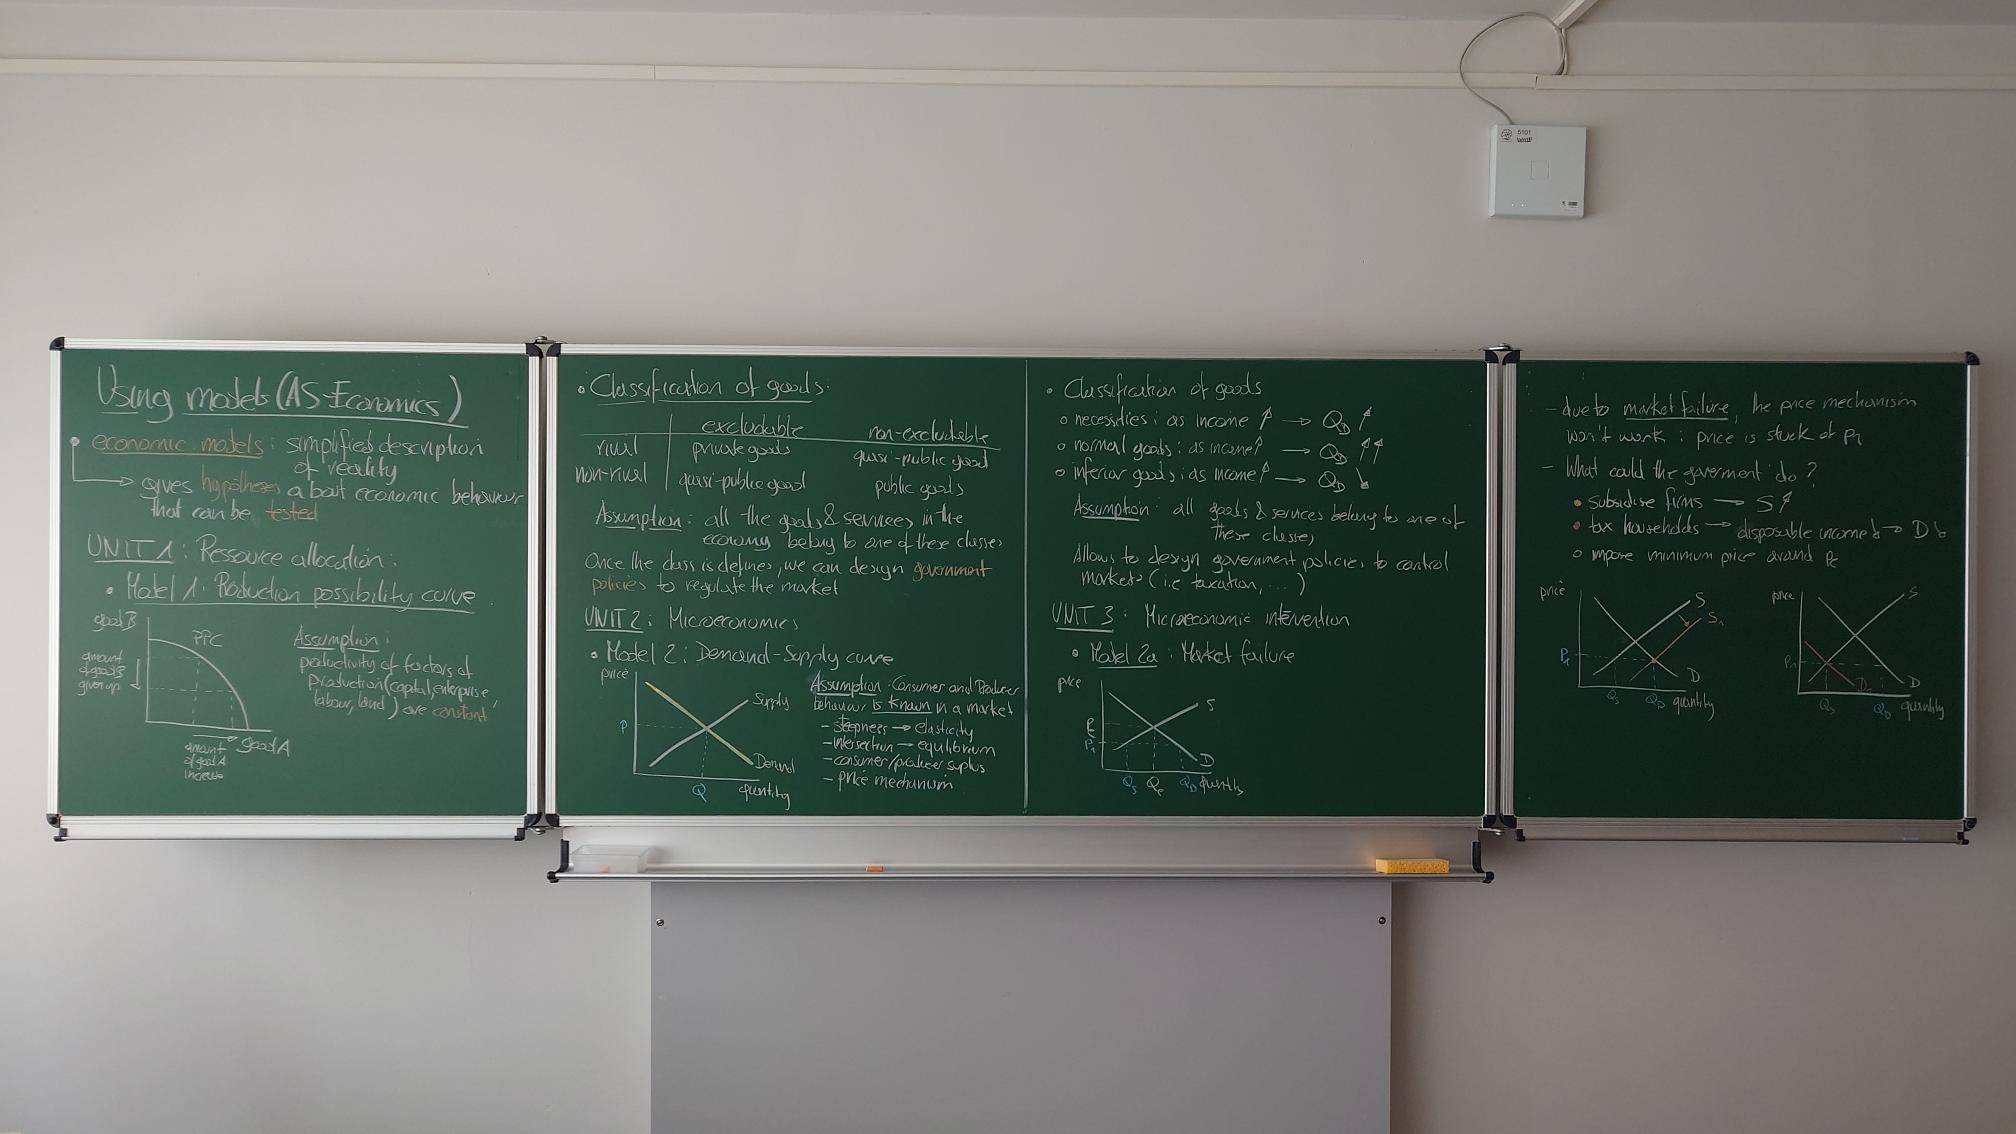 Using models (AS-Economics)
economic models: simplified description
of reality
→ gives hypotheses about economic behaviour
that can be tested
UNIT 1: Ressource allocation:
• Model 1: Production possibility curve
good B
PPC
amount
of good B
given up
good A
amount
of good A
increase
Assumption:
productivity of factors of
production (capital, enterprise,
labour, land) are constant
• Classification of goods:
excludable non-excludable
rival private goods quasi-public good
non-rival quasi-public good public goods
Assumption: all the goods & services in the
economy belong to one of these classes
Once the class is defines, we can design government
policies to regulate the market
UNIT 2: Microeconomics
• Model 2: Demand-Supply curve
price
Supply
P
Demand
Q quantity
Assumption: Consumer and Producer
behaviour is known in a market
- steepness → elasticity
- intersection → equilibrium
- consumer/producer suplus
- price mechanism
• Classification of goods
○ necessities: as income ↑ → QD ↑
○ normal goods: as income ↑ → QD ↑↑
○ inferior goods: as income ↑ → QD ↘
Assumption: all goods & services belong to one of
these classes
Allows to design government policies to control
markets (i.e taxation, ...)
UNIT 3: Microeconomic intervention
• Model 2a: Market failure
price
S
P1
D
Qs Qe QD quantity
- due to market failure, the price mechanism
won't work: price is stuck at P1
- What could the goverment do?
• subsidise firms → S ↑
• tax households → disposable income ↓ → D ↓
○ impose minimum price around Pe
price
S
S1
P1
D
Qs QD quantity
price
S
P1
D1
D
Qs QD quantity
5101